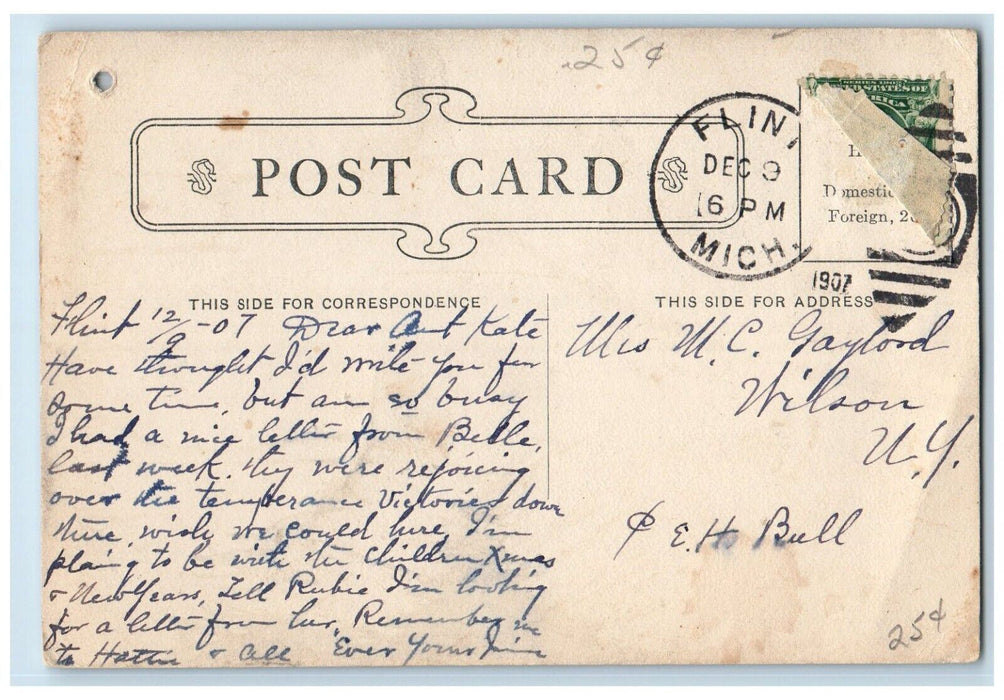 .25¢
SERIES 1902
STATES OF
RICA
POST CARD
FLINT
DEC 9
6 PM
MICH.
1907
Domestic
Foreign, 2
THIS SIDE FOR CORRESPONDENCE
THIS SIDE FOR ADDRESS
Flint 12/9-07 Dear Aunt Kate
Have thought I'd write you for
some time, but am so busy
I had a nice letter from Belle,
last week. they were rejoicing
over the temperance Victories down
there, wish we could here, I'm
planing to be with the children Xmas
& New Years, Tell Rubie I'm looking
for a letter from her, Remember me
to Hattie & all Ever Yours
Mrs M.C. Gaylord
Wilson
N.Y.
¢ E.H. Bull
25¢